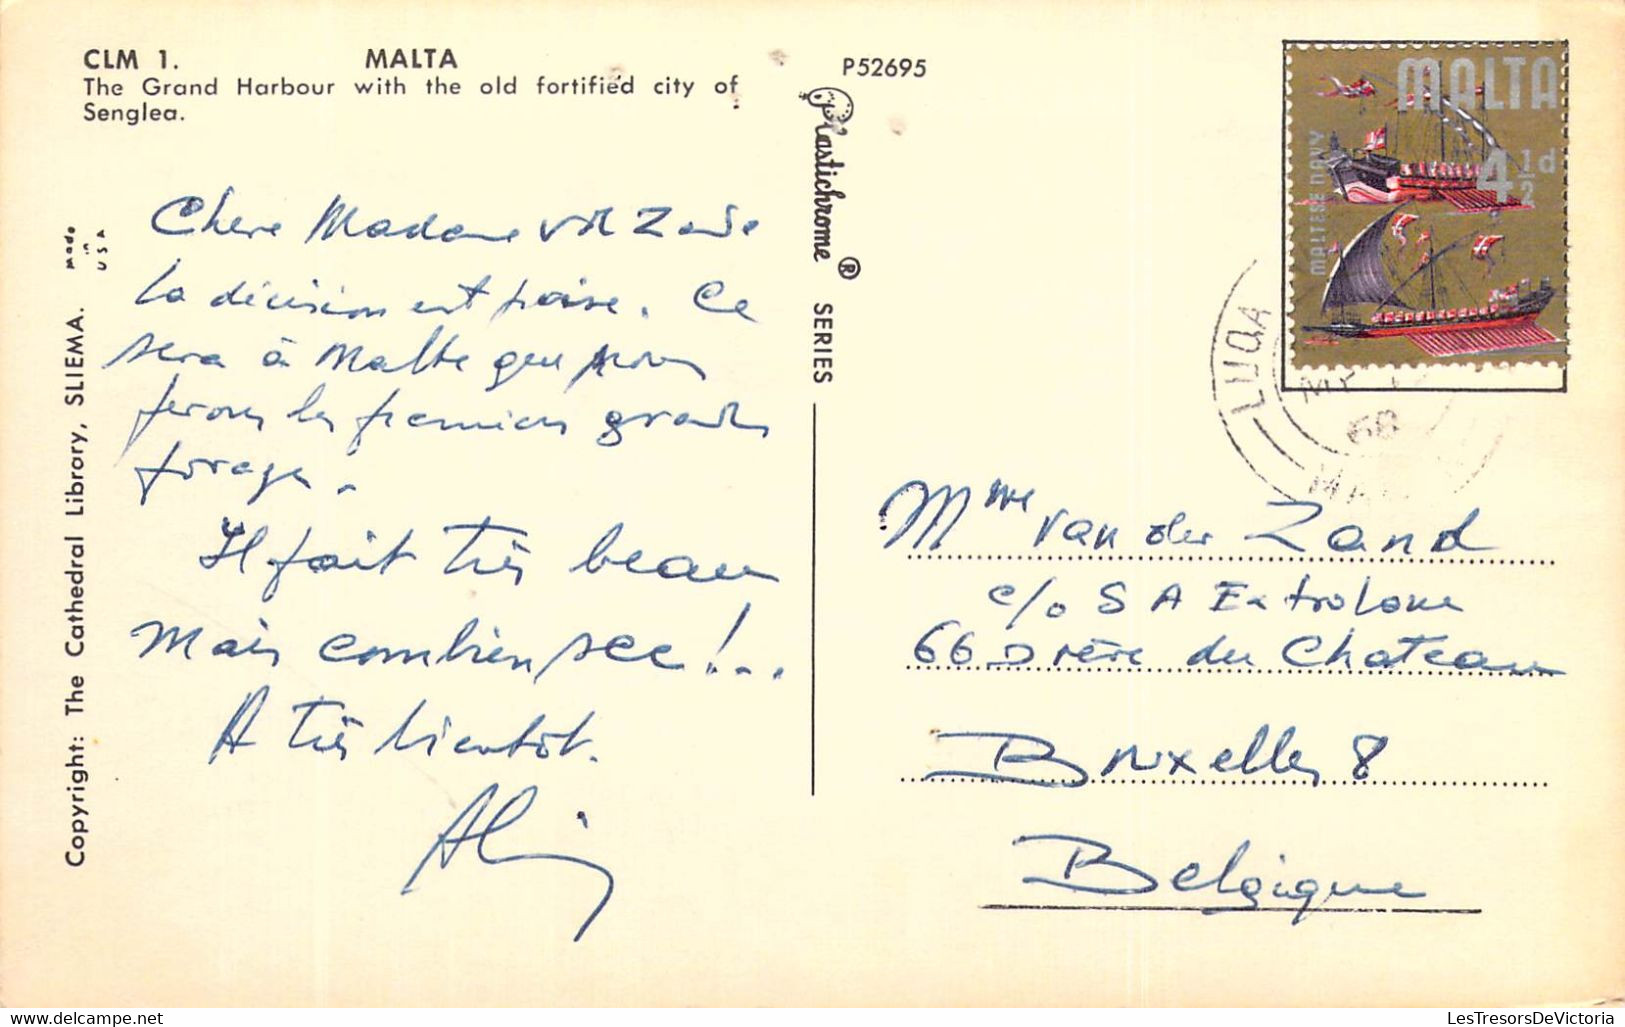 CLM 1. MALTA
The Grand Harbour with the old fortified city of
Senglea.
P52695
Plastichrome ® SERIES
Made in USA
Copyright: The Cathedral Library, SLIEMA.
Chere Madame
La décision est prise. Ce
sera à Malte que nous
ferons les premiers grands
forages.
Il fait très beau
mais combien sec!...
A très bientôt.
Alain
MALTA
4½d
MALTESE NAVY
LUQA
68
Mme van der Zand
c/o S A
66 Drève du Chateau
Bruxelles 8
Belgique
delcampe.net
LesTresorsDeVictoria